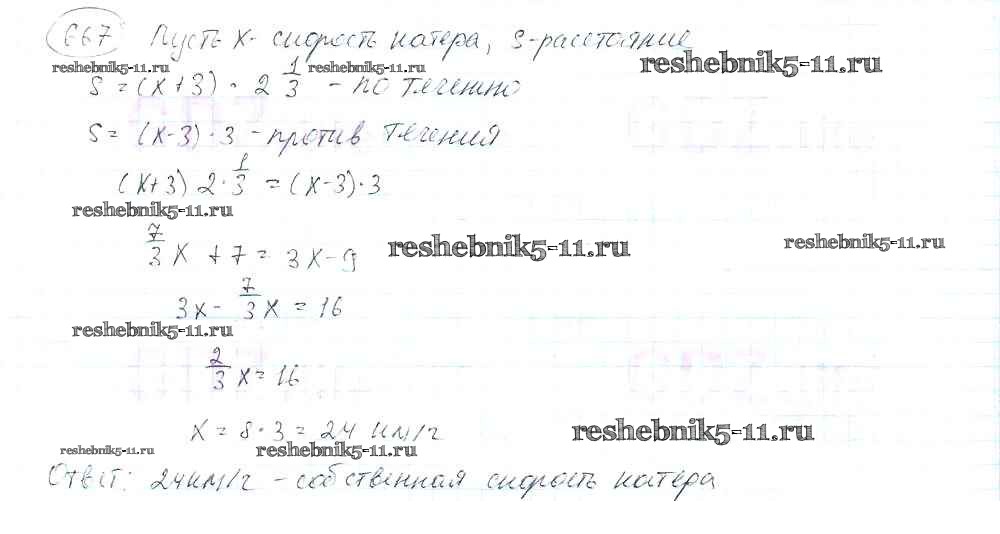 667 Пусть x - скорость катера, S - расстояние
reshebnik5-11.ru reshebnik5-11.ru reshebnik5-11.ru
S = (x+3) · 2 1/3 - по течению
S = (x-3) · 3 - против течения
(x+3) 2 · 1/3 = (x-3) · 3
reshebnik5-11.ru
7/3 x + 7 = 3x - 9
reshebnik5-11.ru reshebnik5-11.ru
3x - 7/3 x = 16
reshebnik5-11.ru
2/3 x = 16
x = 8 · 3 = 24 км/г
reshebnik5-11.ru
reshebnik5-11.ru reshebnik5-11.ru
Ответ: 24 км/г - собственная скорость катера